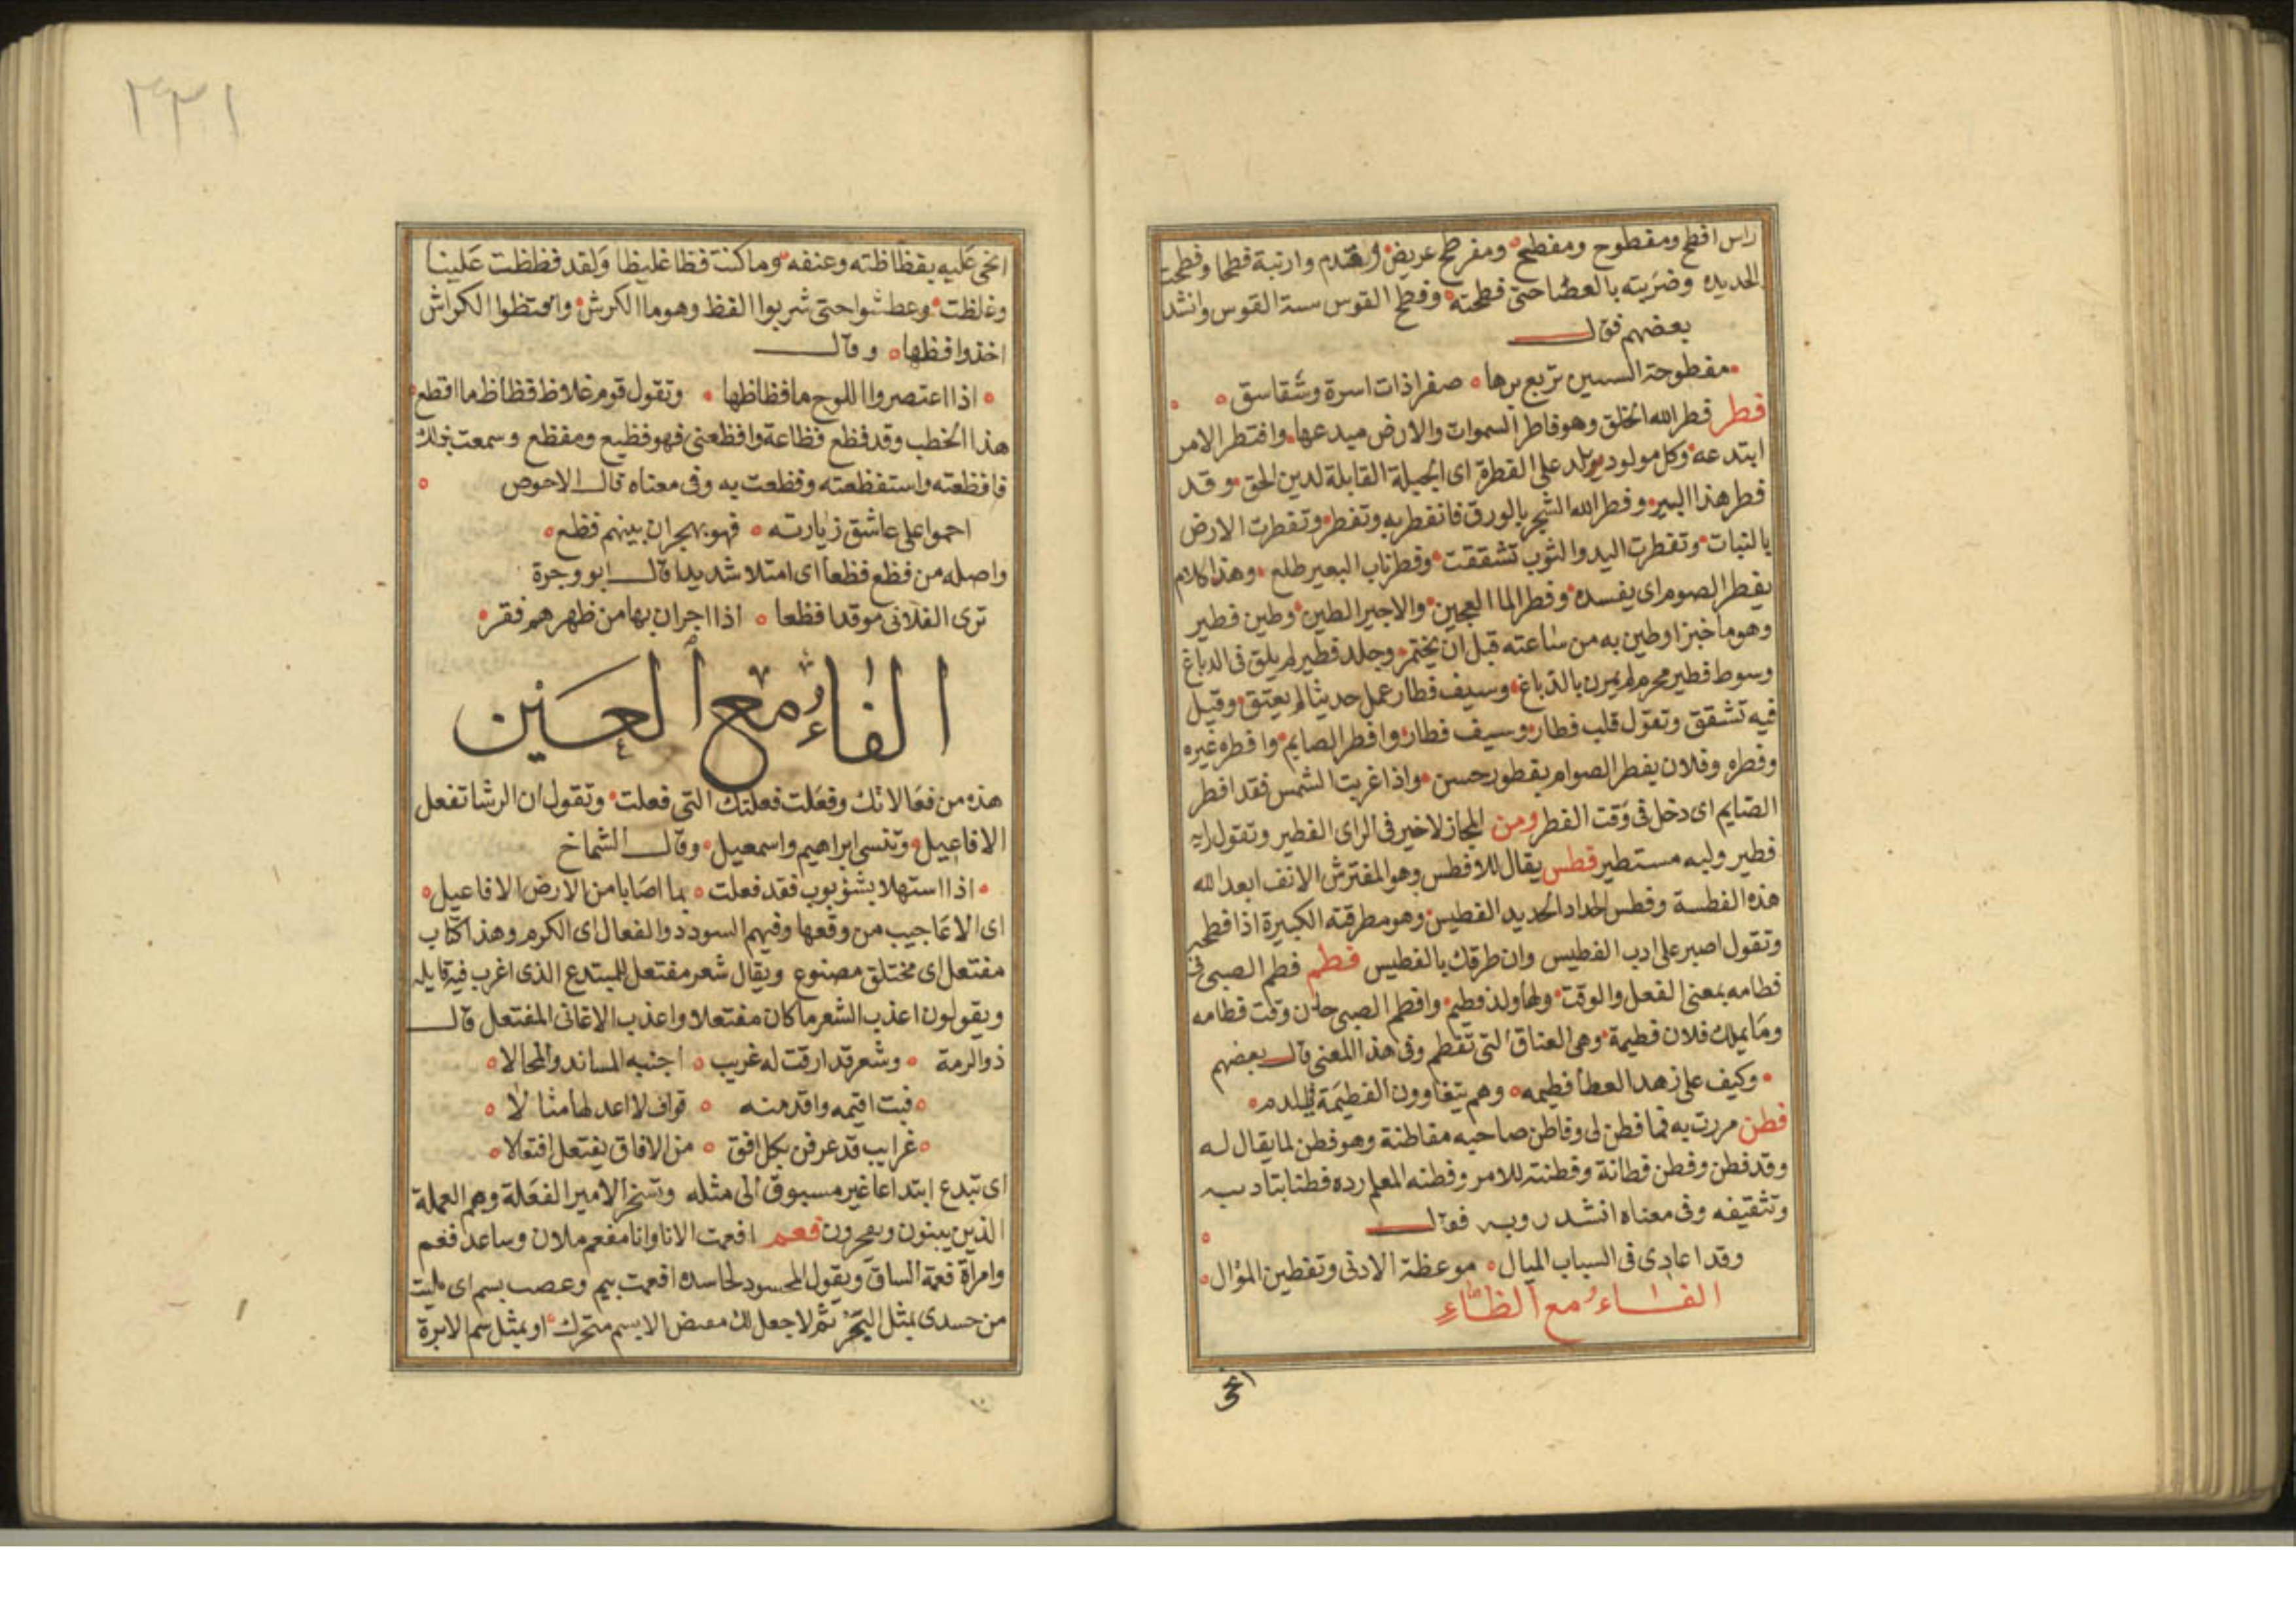 راس افطح ومفطوح ومفطح ومفرطح عريض وقدم وارنبة فطحا وفطحت
الحديده وضربته بالعصا حتى فطحته وفطح القوس سية القوس وانشد
بعضهم فقال
مفطوحة السيين تربع برها صفرا ذات اسرة وشقاسق
فطر فطر الله الخلق وهو فاطر السموات والارض مبدعها وافتطر الامر
ابتدعه وكل مولود يولد على الفطرة اى الجبلة القابلة لدين الحق وقد
فطر هذا البير وفطر الله الشجر بالورق فانفطر به وتفطر وتفطرت الارض
بالنبات وتفطرت اليد والثوب تشققت وفطر ناب البعير طلع وهذا كلام
يفطر الصوم اى يفسده وفطر الما العجين والاجير الطين وطين فطير
وهو ما خبز او طين به من ساعته قبل ان يختمر وجلد فطير لم يلق فى الدباغ
وسوط فطير محرم لم يمرن بالدباغ وسيف فطار عمل حديثا لم يعتق وقيل
فيه تشقق وتقول قلب فطار وسيف فطار وافطر الصايم وافطره غيره
وفطره وفلان يفطر الصوام بفطور حسن واذا غربت الشمس فقد افطر
الصايم اى دخل فى وقت الفطر ومن المجاز لاخير فى الراى الفطير وتقول رايه
فطير ولبه مستطير فطس يقال للافطس وهو المفترش الانف ابعد الله
هذه الفطسة وفطس الحداد الحديد الفطيس وهو مطرقته الكبيرة اذا فطحه
وتقول اصبر على ادب الفطيس وان طرقك بالفطيس فطم فطم الصبى فى
فطامه بمعنى الفعل والوقت ولها ولد فطيم وافطم الصبى حان وقت فطامه
وما يملك فلان فطيمة وهى العناق التى تفطم وفى هذا المعنى قال بعضهم
وكيف على زهد العطا فطيمه وهم يتغاوون الفطيمة
فطن مررت به فما فطن لى وفاطن صاحبه مفاطنة وهو فطن لما يقال له
وقد فطن وفطن فطانة وفطنته للامر وفطنه المعلم رده فطنا بتاديبه
وتثقيفه وفى معناه انشد روبه فقال
وقد اعادى فى السباب الميال موعظة الادنى وتفطين المؤال
الفاء مع الظاء
٢٣١
انحى عليه بفظاظته وعنفه وما كنت فظا غليظا ولقد فظظت علينا
وغلظت وعطشوا حتى شربوا الفظ وهو ما الكرش وافتظوا الكراش
اخذوا فظها وقال
اذا اعتصروا اللوح ما فظاظها وتقول قوم غلاظ فظاظ ما افظع
هذا الخطب وقد فظع فظاعة وافظعنى فهو فظيع ومفظع وسمعت بذلك
فافظعته واستفظعته وفظعت به وفى معناه قال الاحوص
احموا على عاشق زيارته فهو بهجران بينهم فظع
واصله من فظع فظعا اى امتلا شديدا قال ابو وجرة
ترى الفلانى موقدا فظعا اذا اجران بها من ظهرهم فقر
الفاء مع العين
هذه من فعالاتك وفعلت فعلتك التى فعلت وتقول ان الرشا تفعل
الافاعيل وتنسى ابراهيم واسمعيل وقال الشماخ
اذا استهلا بشؤبوب فقد فعلت بما اصابا من الارض الافاعيل
اى الاعاجيب من وقعها وفيهم السودد والفعال اى الكرم وهذا كتاب
مفتعل اى مختلق مصنوع ويقال شعر مفتعل للمبتدع الذى اغرب فيه قايله
ويقولون اعذب الشعر ما كان مفتعلا واعذب الاغانى المفتعل قال
ذو الرمة وشعر قد ارقت له غريب اجنبه المساند والمحالا
فبت اقيمه واقد منه قواف لا اعد لها مثالا
غرايب قد عرفن بكل افق من الافاق يفتعل افتعالا
اى تبدع ابتداعا غير مسبوق الى مثله وتسخر الامير الفعلة وهم العملة
الذين يبنون ويحفرون فعم افعمت الانا وانا مفعم ملان وساعد فعم
وامراة فعمة الساق ويقول المحسود لحاسده افعمت بيم وعصب بسم اى مليت
من حسدى بمثل البحر ثم لا جعل لك مغيض الا بسم متحرك او بمثل سم الابرة